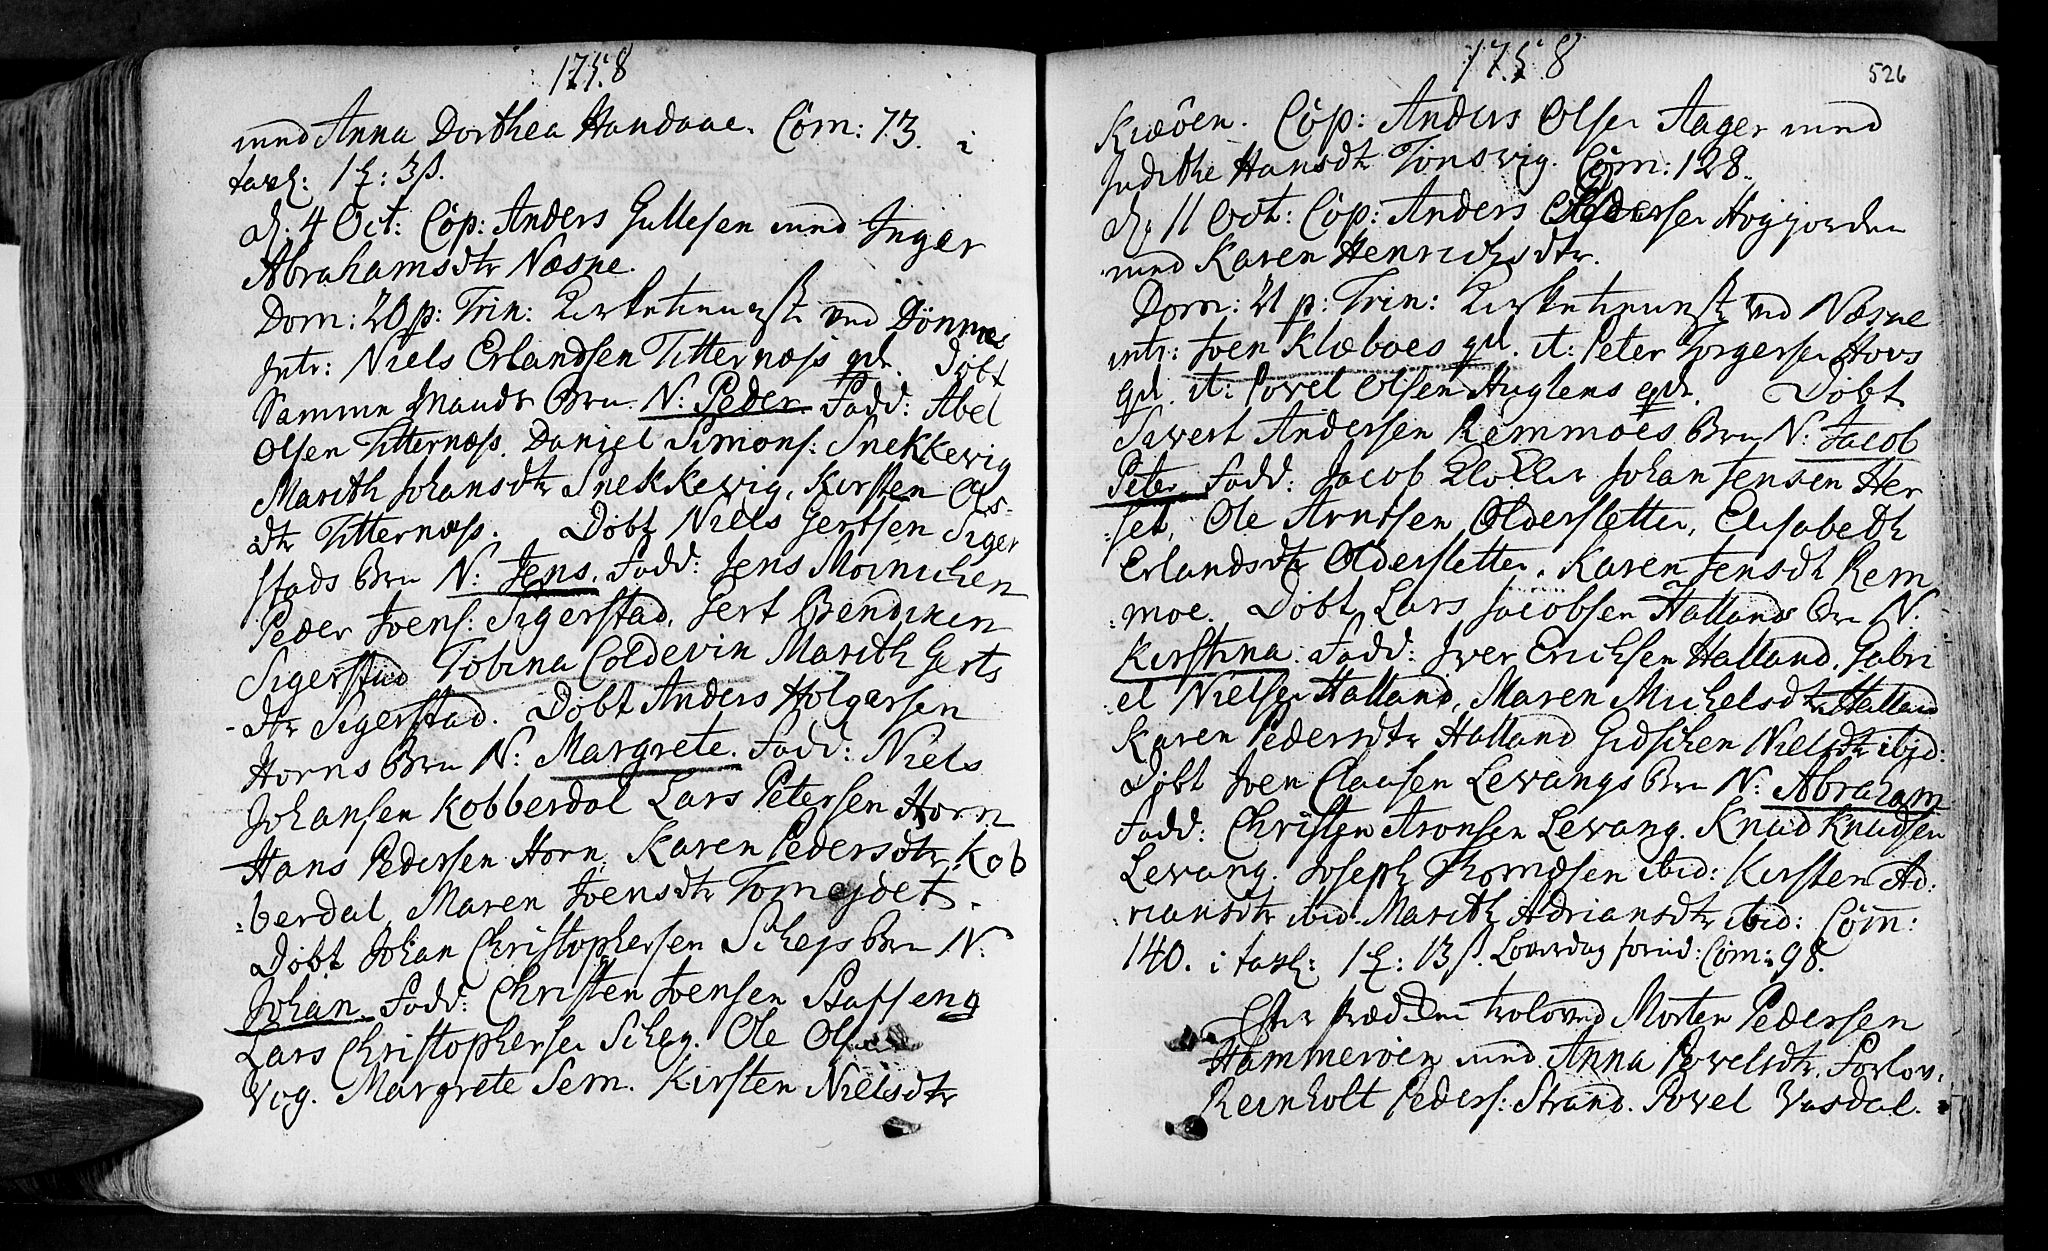 1758
med Anna Dorthea Handaae. Com: 73. i
tavl: 1 : 3 ß.
d. 4 Oct: Cop: Anders Gullesen med Inger
Abrahamsdtr Næsne.
Dom: 20 p: Trin: Kirketieneste ved Dönnes
Intr: Niels Erlandsen Titternæss qd. Döbt
Samme Mands Brn N: Peder Fadd: Abel
Olsen Titternæss. Daniel Simons: Snekkevig
Marith Johansdtr Snekkevig, Kirsten Ols-
dtr Titternæss. Döbt Niels Gertsen Siger
stads Brn N: Jens. Fadd: Jens Moinichen
Peder Joens: Sigerstad, Gert Bendixen
Sigerstad Tobina Coldevin Marith Gerts
-dtr Sigerstad. Döbt Anders Holgersen
Horns Brn N: Margrete. Fadd: Niels
Johansen Kobberdal Lars Petersen Horn
Hans Pedersen Horn, Karen Pedersdtr Kob
:berdal, Maren Joensdtr Tomejdet.
Döbt Johan Christophersen Schejs Brn N:
Johan. Fadd: Christen Joensen Staffeng
Lars Christophersen Schej. Ole Olsen
Vog. Margrete Sem. Kirsten Nielsdtr
1758
526
Kiæöen. Cop: Anders Olsen Aager med
Judithe Hansdtr Tönsvig. Com: 128.
d. 11 Oct: Cop: Anders Pedersen Høgjorden
med Karen Henrichsdtr.
Dom: 21 p: Trin: Kirketieneste ved Næsne
intr: Joen Klæboes qd. it: Peter Torgersen Hovs
qd. it: Povel Olsen Huglens qd. Döbt
Sivert Andersen Remmoes Brn N: Jacob
Peter Fadd: Jacob Klocker Johan Jensen Her
:set, Ole Arntsen Olderslette, Elisabeth
Erlandsdtr Olderslette, Karen Jensdtr Rem
:moe. Döbt Lars Jacobsen Hallands Brn N:
Kirstina. Fadd: Iver Erichsen Halland, Gabri
el Nielsen Halland, Maren Michelsdtr Halland
Karen Pedersdtr Halland Gidschen Nielsdtr ibid:
Döbt Joen Clausen Levangs Brn N: Abraham
Fadd: Christen Aronsen Levang. Knud Knudsen
Levang. Joseph Thomæsen ibid: Kirsten Ad:
riansdtr ibid. Marith Adriansdtr ibid: Com:
140. i tavl: 1 : 13 ß. Løverdag forud: Com: 98.
Efter Prædiken troloved Morten Pedersen
Hammeröen med Anna Povelsdtr. Forlov:
Reinholt Peders: Strand. Povel Vasdal.